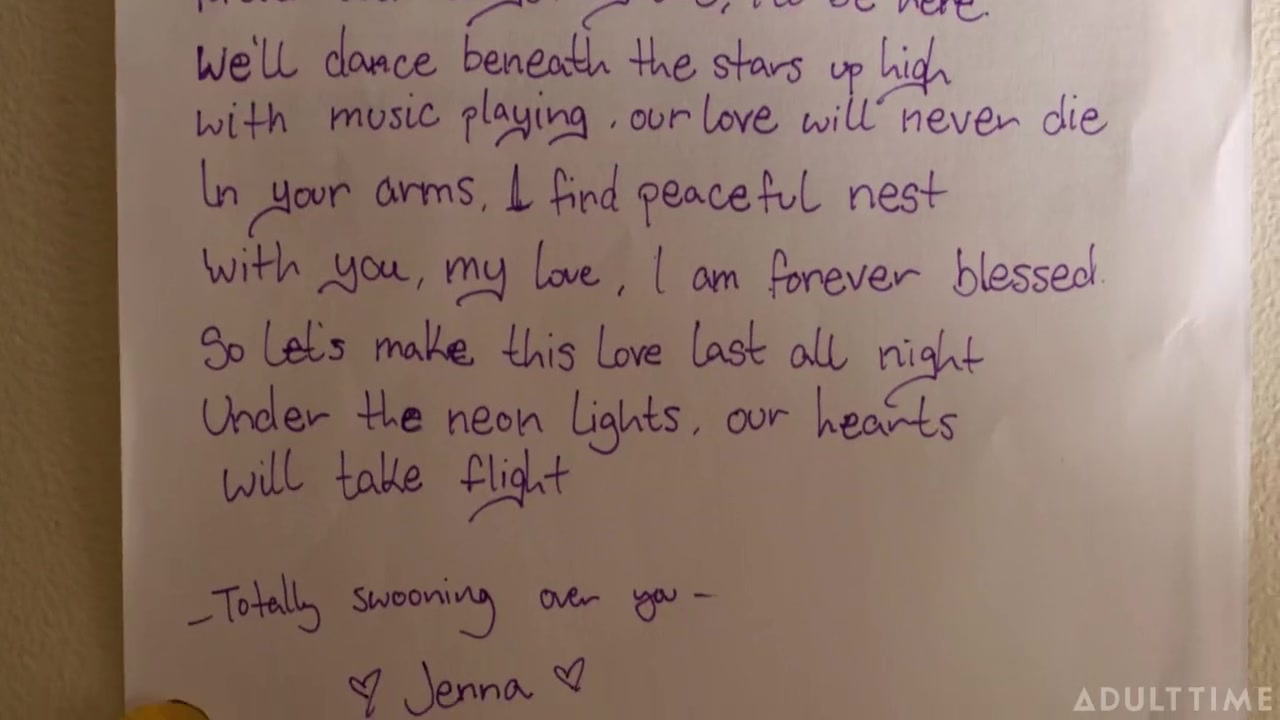 I'll be here.
We'll dance beneath the stars up high
with music playing, our love will never die
In your arms, I find peaceful nest
with you, my love, I am forever blessed.
So let's make this love last all night
Under the neon lights, our hearts
will take flight
-Totally swooning over you-
♡ Jenna ♡
ADULTTIME